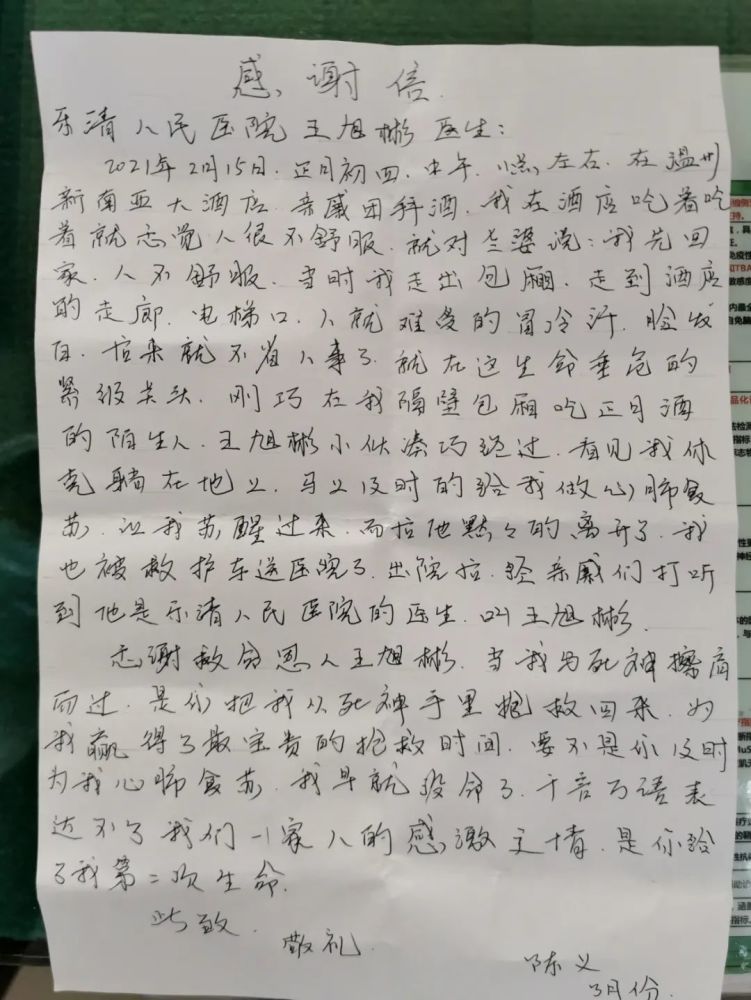 感谢信
乐清人民医院王旭彬医生：
2021年2月15日.正月初四.中午.1点左右.在温州
新南亚大酒店.亲戚团拜酒.我在酒店吃着吃
着就感觉人很不舒服.就对老婆说：我先回
家.人不舒服.当时我走出包厢.走到酒店
的走廊.电梯口.人就难受的冒冷汗.脸发
白.后来就不省人事了.就在这生命垂危的
紧级关头.刚巧在我隔壁包厢吃正月酒
的陌生人.王旭彬小伙凑巧经过.看见我休
克躺在地上.马上及时的给我做心肺复
苏.让我苏醒过来.而后他默々的离开了.我
也被救护车送医院了.出院后.经亲戚们打听
到他是乐清人民医院的医生.叫王旭彬.
感谢救命恩人王旭彬.当我与死神擦肩
而过.是你把我从死神手里抢救回来.为
我赢得了最宝贵的抢救时间.要不是你及时
为我心肺复苏.我早就没命了.千言万语表
达不了我们一家人的感激之情.是你给
了我第二次生命.
此致.
敬礼.
陈义
3月份.
品化